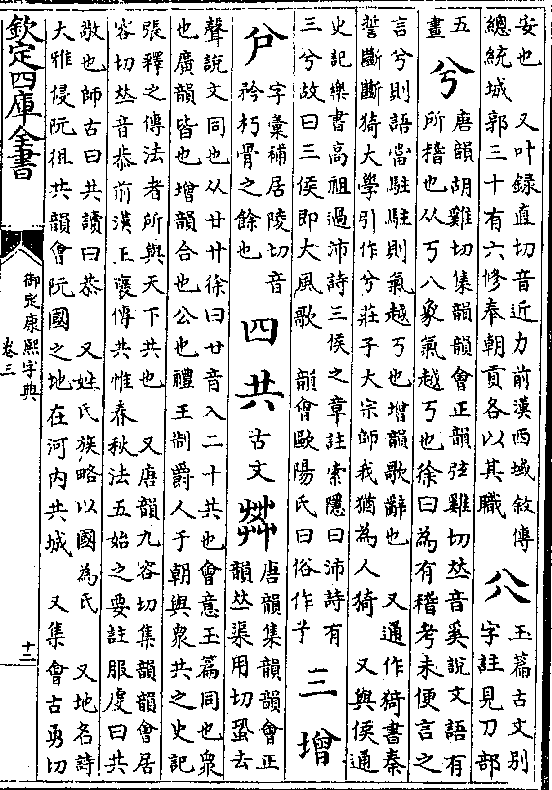 安也　又叶録直切音近力前漢西域敘傳
總統城郭三十有六修奉朝貢各以其職
𠔁
玉篇古文別
字註見刀部
五畫
兮
唐韻胡雞切集韻韻會正韻弦雞切𠀤音奚說文語有
所稽也从丂八象氣越丂也徐曰為有稽考未便言之
言兮則語當駐駐則氣越丂也增韻歌辭也　又通作猗書秦
誓斷斷猗大學引作兮莊子大宗師我猶為人猗　又與侯通
史記樂書高祖過沛詩三侯之章註索隱曰沛詩有
三兮故曰三侯即大風歌　韻會歐陽氏曰俗作
三增
字彙補居陵切音
矜朽骨之餘也
四
共
古文
唐韻集韻韻會正
韻𠀤渠用切蛩去
聲說文同也从廿廾徐曰廿音入二十共也會意玉篇同也眾
也廣韻皆也增韻合也公也禮王制爵人于朝與眾共之史記
張釋之傳法者所與天下共也　又唐韻九容切集韻韻會居
容切𠀤音恭前漢王襃傳共惟春秋法五始之要註服虔曰共
敬也師古曰共讀曰恭　又姓氏族略以國為氏　又地名詩
大雅侵阮徂共韻會阮國之地在河内共城　又集會古勇切
欽定四庫全書
御定康熙字典
卷三
十三